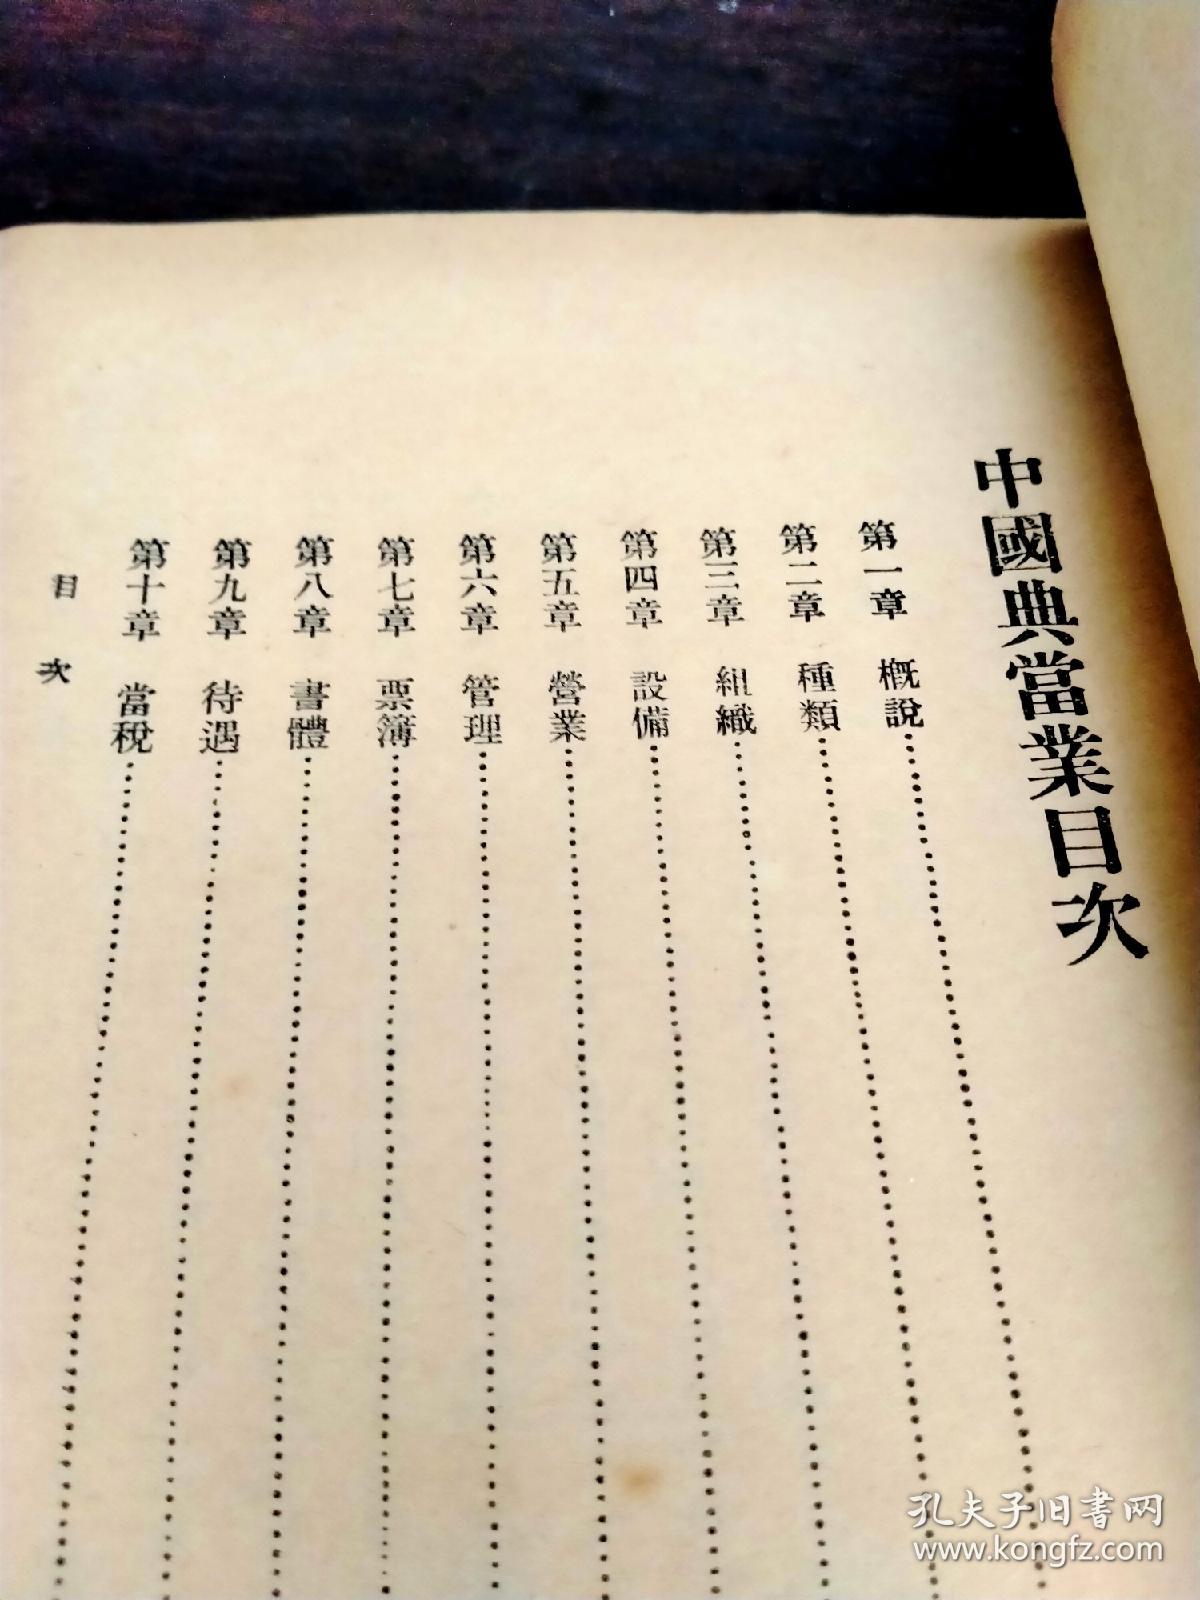 中國典當業目次
第一章 概說
第二章 種類
第三章 組織
第四章 設備
第五章 營業
第六章 管理
第七章 票簿
第八章 書體
第九章 待遇
第十章 當稅
目次
孔夫子旧书网
www.kongfz.com